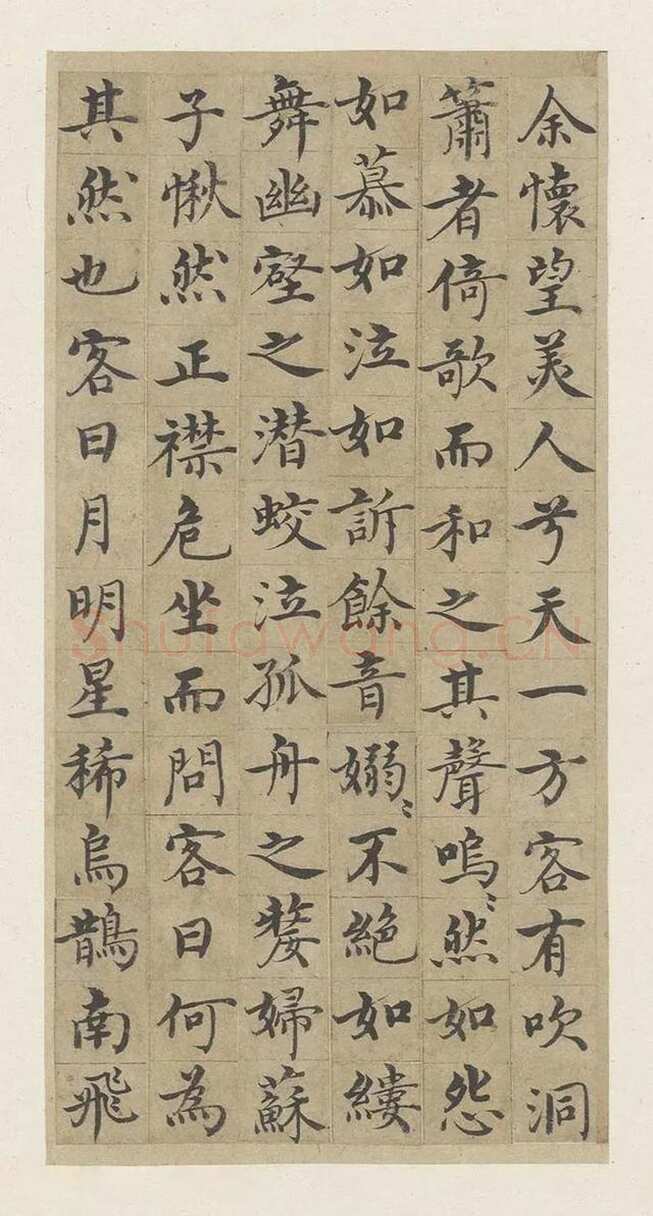 余懷望美人兮天一方客有吹洞
簫者倚歌而和之其聲嗚〻然如怨
如慕如泣如訴餘音嫋〻不絕如縷
舞幽壑之潛蛟泣孤舟之嫠婦蘇
子愀然正襟危坐而問客曰何為
其然也客曰月明星稀烏鵲南飛
Shufawang.CN